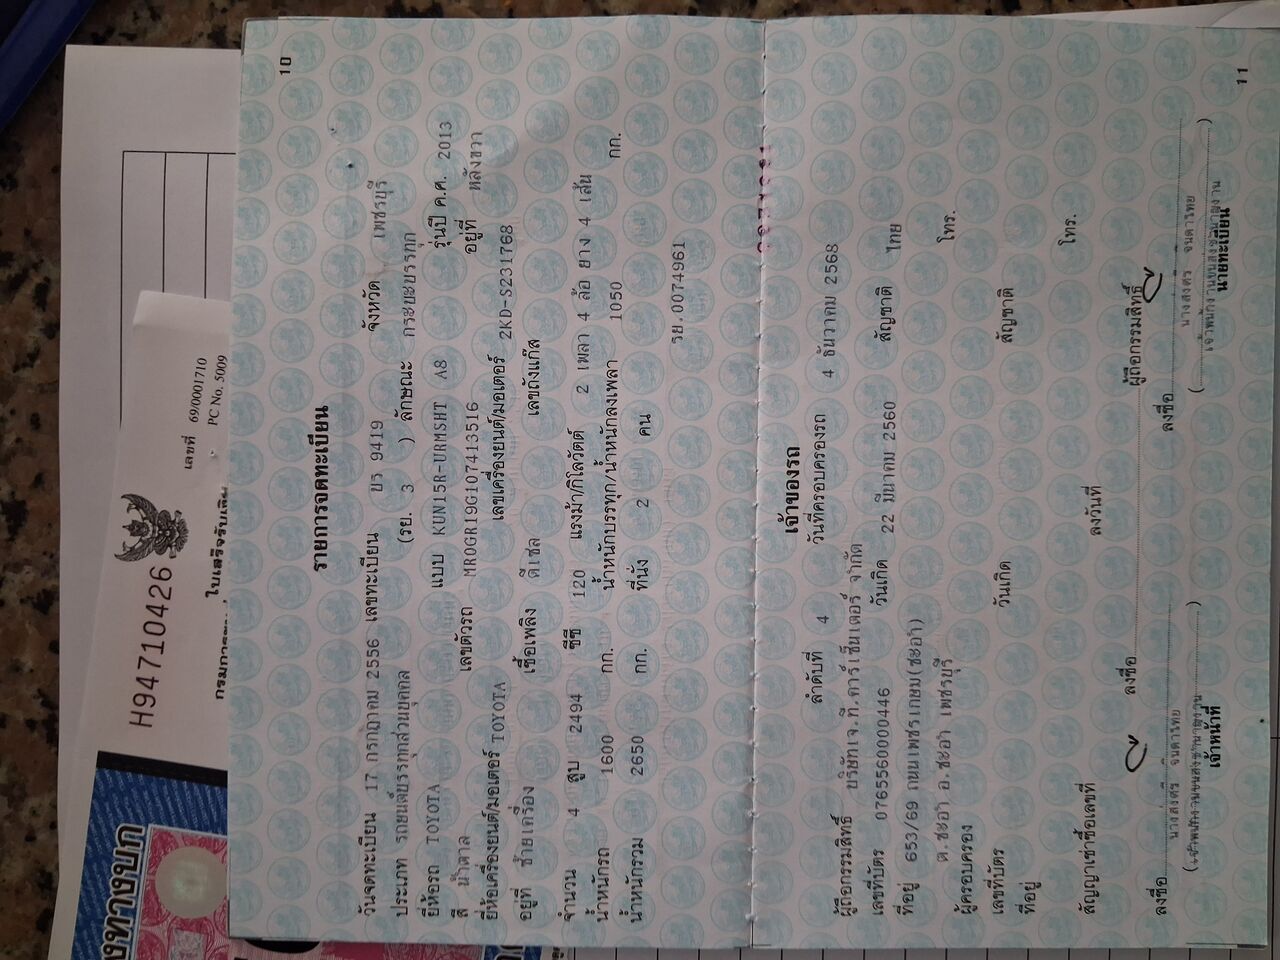 H94710426
เลขที่ 69/0001710
PC No. 5009
ใบเสร็จรับเงิน
10
รายการจดทะเบียน
วันจดทะเบียน 17 กรกฎาคม 2556 เลขทะเบียน บร 9419 จังหวัด เพชรบุรี
ประเภท รถยนต์บรรทุกส่วนบุคคล (รย. 3 ) ลักษณะ กระบะบรรทุก
ยี่ห้อรถ TOYOTA แบบ KUN15R-URMSHT A8 รุ่นปี ค.ศ. 2013
สี น้ำตาล เลขตัวรถ MR0GR19G107413516 อยู่ที่ หลังขวา
ยี่ห้อเครื่องยนต์/มอเตอร์ TOYOTA เลขเครื่องยนต์/มอเตอร์ 2KD-S231768
อยู่ที่ ซ้ายเครื่อง เชื้อเพลิง ดีเซล เลขถังแก๊ส
จำนวน 4 สูบ 2494 ซีซี 120 แรงม้า/กิโลวัตต์ 2 เพลา 4 ล้อ ยาง 4 เส้น
น้ำหนักรถ 1600 กก. น้ำหนักบรรทุก/น้ำหนักลงเพลา 1050 กก.
น้ำหนักรวม 2650 กก. ที่นั่ง 2 คน
รย.0074961
เจ้าของรถ
ลำดับที่ 4 วันที่ครอบครองรถ 4 ธันวาคม 2568
ผู้ถือกรรมสิทธิ์ บริษัทเจ.ที.คาร์เซ็นเตอร์ จำกัด
เลขที่บัตร 0765560000446 วันเกิด 22 มีนาคม 2560 สัญชาติ ไทย
ที่อยู่ 653/69 ถนนเพชรเกษม(ชะอำ)
ต.ชะอำ อ.ชะอำ เพชรบุรี โทร.
ผู้ครอบครอง
เลขที่บัตร วันเกิด สัญชาติ
ที่อยู่
โทร.
สัญญาเช่าซื้อเลขที่ ลงวันที่
ลงชื่อ ผู้ถือกรรมสิทธิ์
ลงชื่อ นางสงศรี จนดาไทย ลงชื่อ นางสงศรี จนดาไทย
เจ้าหน้าที่ นายทะเบียน
11